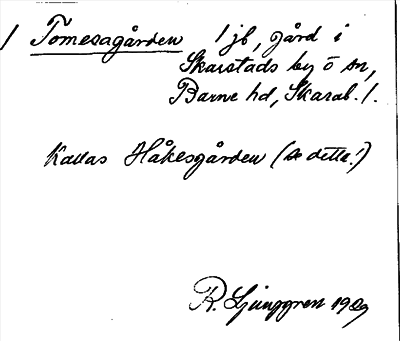 / Tomesagården / jb, gård i
Skarstads by o sn,
Barne hd, Skarab. /.
Kallas Håkesgården (se detta!)
R. Ljunggren 1929